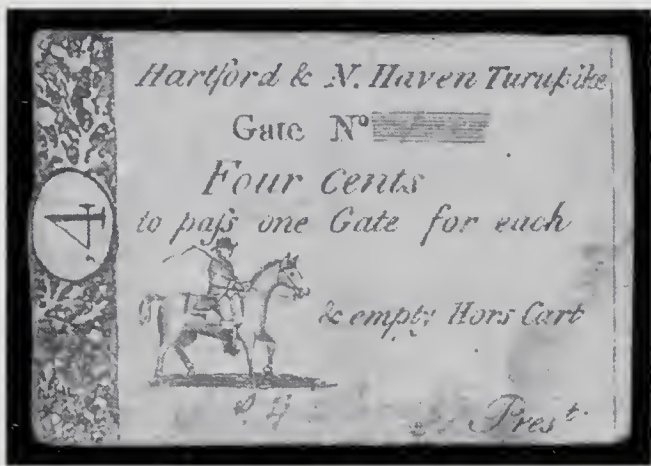 Hartford & N. Haven Turnpike
Gate Nº
Four Cents
4
to paſs one Gate for each
& empty Hors Cart
Presᵗ